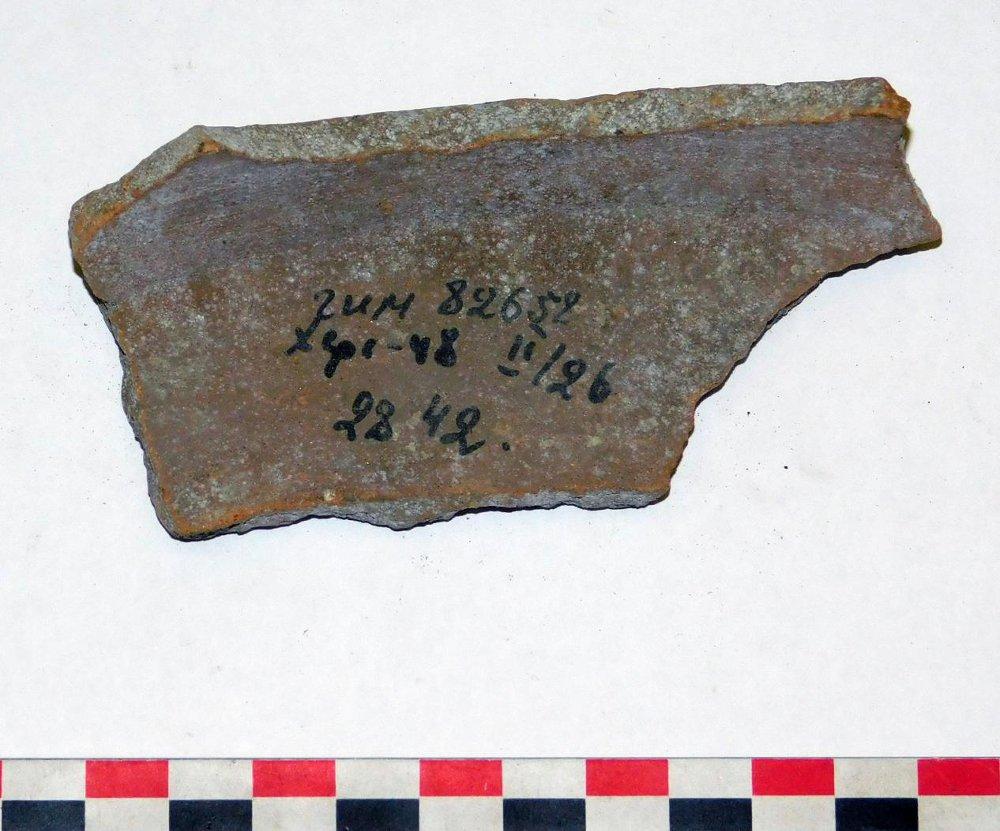 гим 82652
Хув-48 II/26
2842.